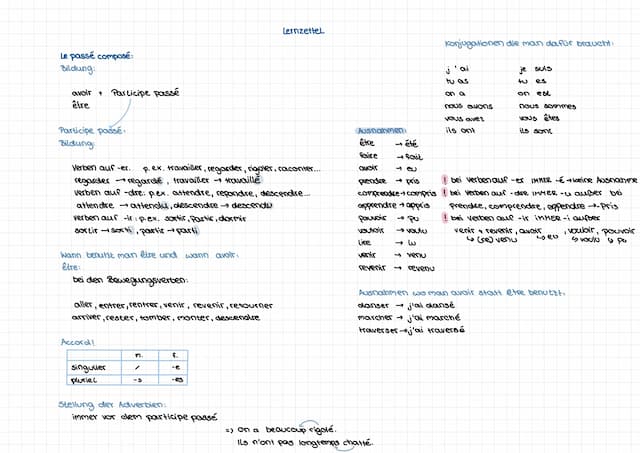 Lernzettel
Le passé composé:
Bildung:
avoir + Participe passé
être
Participe passé:
Bildung:
Verben auf -er: p.ex. travailler, regarder, rigoler, raconter...
regarder → regardé, travailler → travaillé
Verben auf -dre: p.ex. attendre, repondre, descendre...
attendre → attendu, descendre → descendu
verben auf -ir: p.ex. sortir, partir, dormir
sortir → sorti, partir → parti
Wann benutzt man être und wann avoir:
être:
bei den Bewegungsverben:
aller, entrer, rentrer, venir, revenir, retourner
arriver, rester, tomber, monter, descendre
Accord!
m. f.
singulier / -e
pluriel -s -es
Stellung der Adverbien:
immer vor dem participe passé
=) on a beaucoup rigolé.
Ils n'ont pas longtemps chatté.
Konjugationen die man dafür braucht:
j'ai je suis
tu as tu es
on a on est
nous avons nous sommes
vous avez vous êtes
ils ont ils sont
Ausnahmen:
être → été
faire → fait
avoir → eu
prendre → pris
comprendre → compris
apprendre → appris
pouvoir → pu
vouloir → voulu
lire → lu
venir → venu
revenir → revenu
! bei Verben auf -er IMMER -é → keine Ausnahme
! bei Verben auf -dre IMMER -u außer bei
prendre, comprendre, apprendre → pris
! bei Verben auf -ir IMMER -i außer
venir + revenir, avoir, vouloir, pouvoir
↳ (re)venu ↳ eu ↳ voulu ↳ pu
Ausnahmen wo man avoir statt être benutzt:
danser → j'ai dansé
marcher → j'ai marché
traverser → j'ai traversé